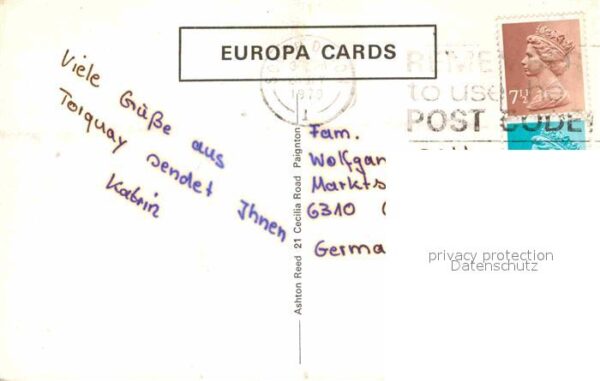 EUROPA CARDS
REME
to use
POST CODE
1979
1
7½
Viele Grüße aus
Torquay sendet Ihnen
Katrin
Ashton Reed 21 Cecilia Road Paignton
Fam.
Wolfgan
Markts
6310
Germa
privacy protection
Datenschutz